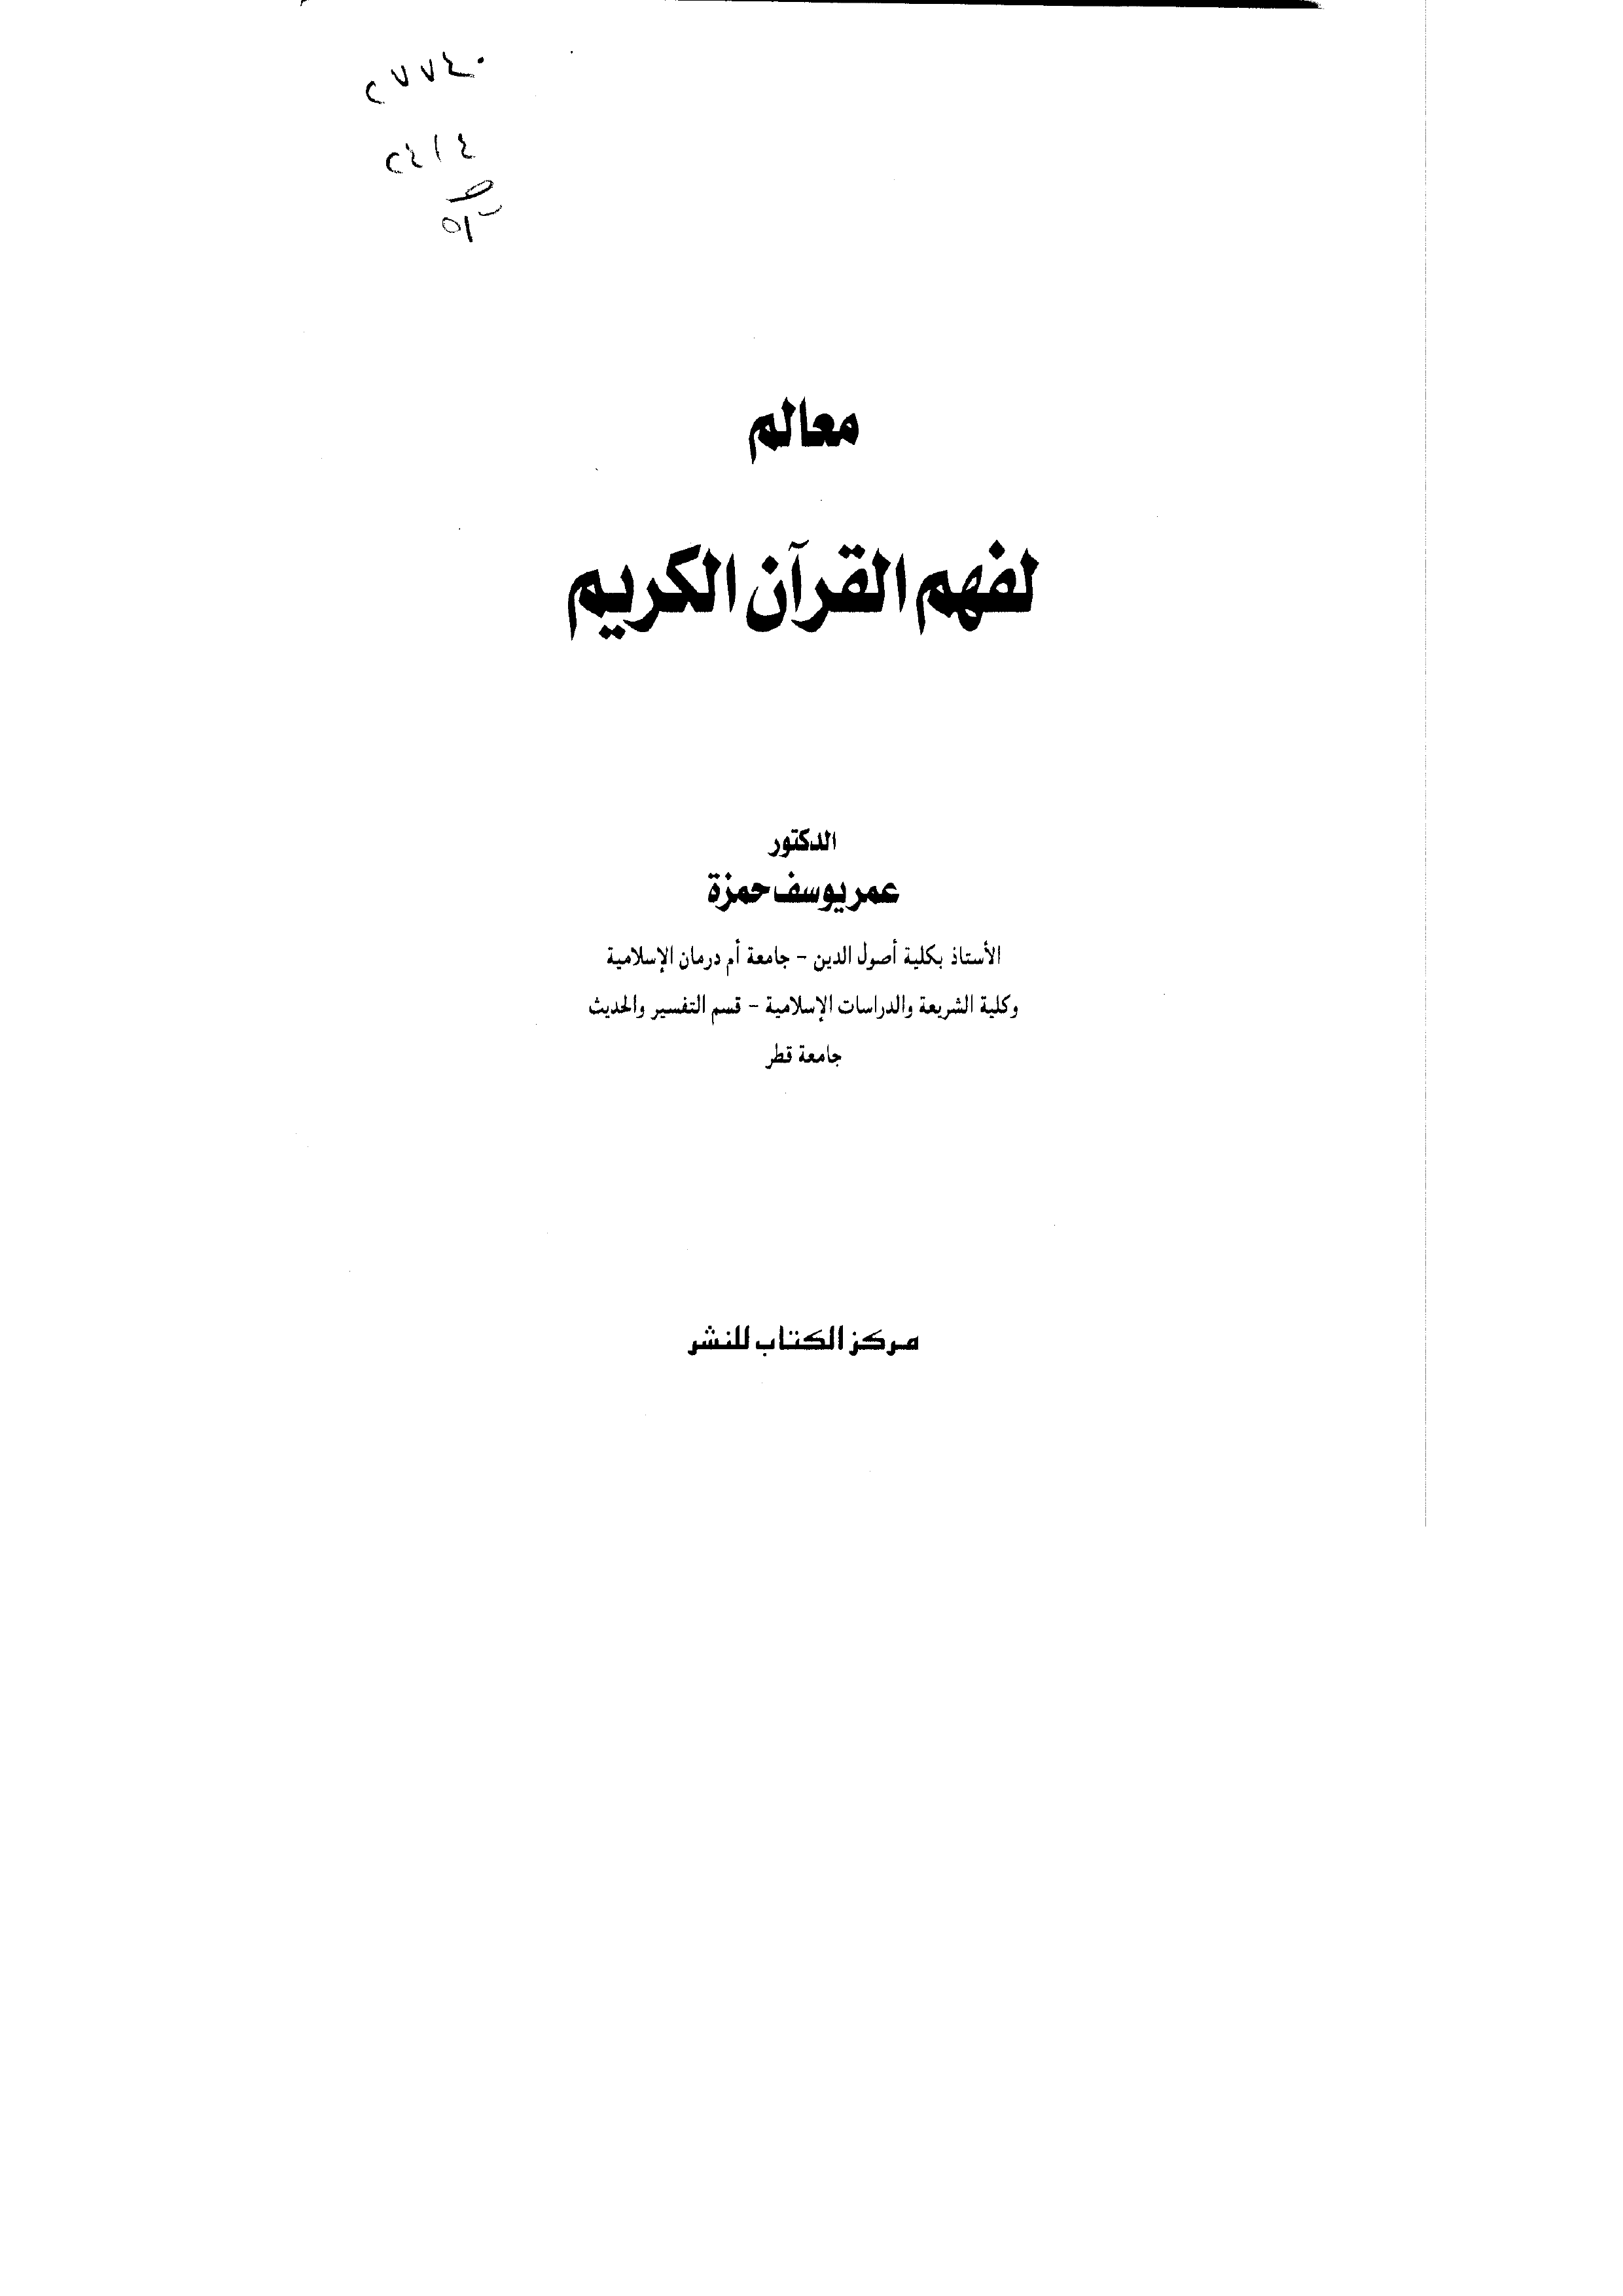 ٢٧٧٤٠
٢٤١٤
معالم
لفهم القرآن الكريم
الدكتور
عمر يوسف حمزة
الأستاذ بكلية أصول الدين - جامعة أم درمان الإسلامية
وكلية الشريعة والدراسات الإسلامية - قسم التفسير والحديث
جامعة قطر
مركز الكتاب للنشر